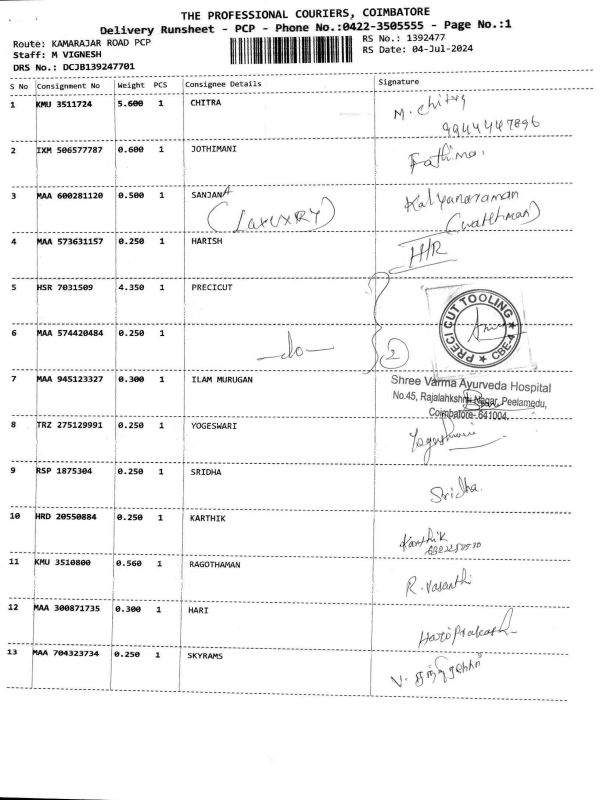 THE PROFESSIONAL COURIERS, COIMBATORE
Delivery Runsheet - PCP - Phone No.:0422-3505555 - Page No.:1
Route: KAMARAJAR ROAD PCP RS No.: 1392477
Staff: M VIGNESH RS Date: 04-Jul-2024
DRS No.: DCJB139247701
S No Consignment No Weight PCS Consignee Details Signature
1 KMU 3511724 5.600 1 CHITRA M. Chitra
9944447896
2 IXM 506577787 0.600 1 JOTHIMANI Fathima.
3 MAA 600281120 0.500 1 SANJANA Kalyanaraman
(LAXUXRY) (watchman)
4 MAA 573631157 0.250 1 HARISH HR
5 HSR 7031509 4.350 1 PRECICUT
PRECICUT TOOLING CBE-4
6 MAA 574420484 0.250 1
—do— 2
7 MAA 945123327 0.300 1 ILAM MURUGAN Shree Varma Ayurveda Hospital
No.45, Rajalahkshmi Nagar, Peelamedu,
Coimbatore- 641004.
8 TRZ 275129991 0.250 1 YOGESWARI Yogeshwari
9 RSP 1875304 0.250 1 SRIDHA Sridha.
10 HRD 20550884 0.250 1 KARTHIK Karthik
11 KMU 3510800 0.560 1 RAGOTHAMAN R. Vasanthi
12 MAA 300871735 0.300 1 HARI Hari Prakash
13 MAA 704323734 0.250 1 SKYRAMS V.